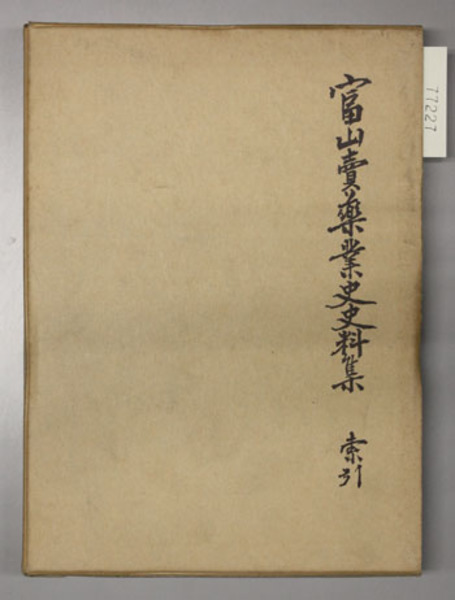 富山賣藥業史史料集 索引
77227